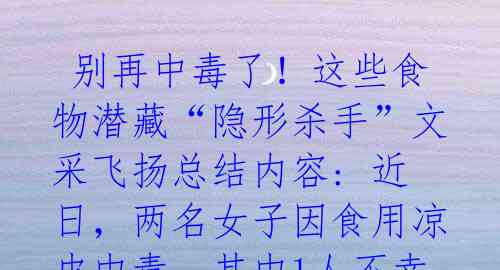 别再中毒了！这些食
物潜藏“隐形杀手”文
采飞扬总结内容：近
日，两名女子因食用凉
皮中毒，其中1人不幸